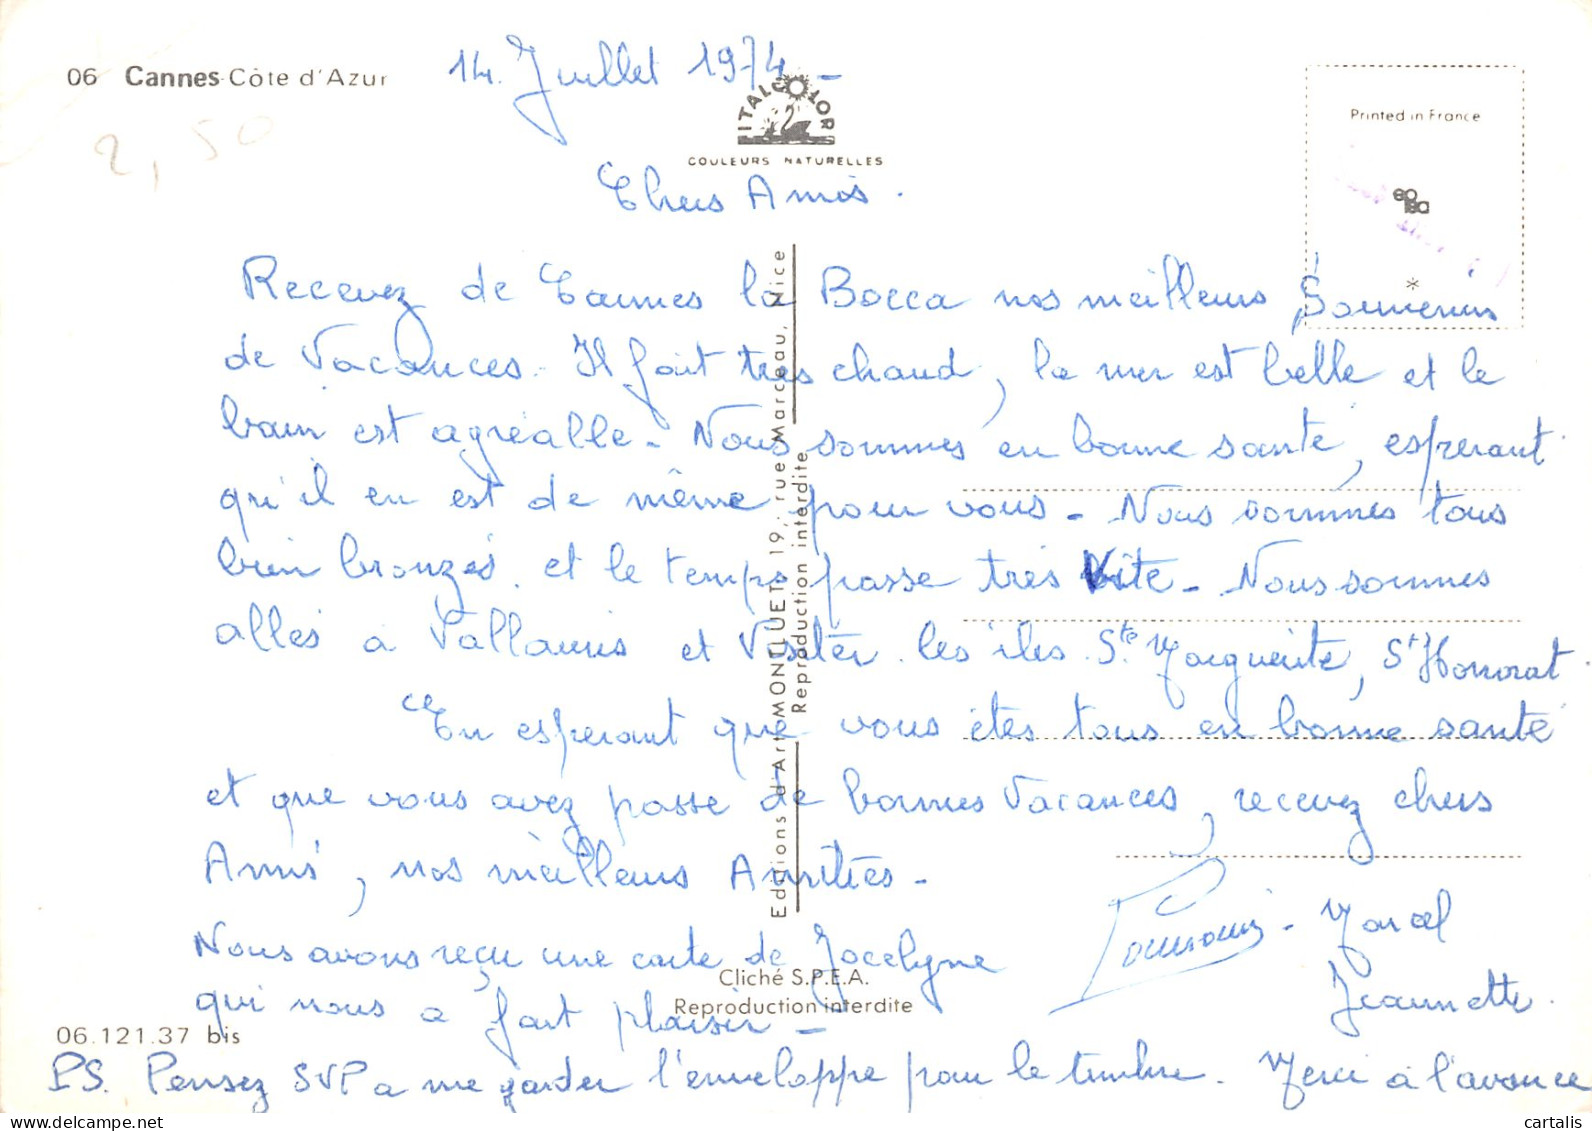 06 Cannes-Côte d'Azur
14. Juillet 1974 -
2,50
ITALCOLOR
COULEURS NATURELLES
Printed in France
*
Chers Amis.
Recevez de Cannes la Bocca nos meilleurs Souvenirs
de Vacances - Il fait très chaud, la mer est belle et le
bain est agréable - Nous sommes en bonne santé, esperant
qu'il en est de même pour vous - Nous sommes tous
bien bronzés. et le temps passe très Vite - Nous sommes
allés à Vallauris et Visiter les îles Ste Marguerite, St Honorat.
En esperant que vous êtes tous en bonne santé
et que vous avez passe de bonnes Vacances, recevez chers
Amis, nos meilleurs Amitiés -
Nous avons reçu une carte de Jocelyne
qui nous a fait plaisir -
Marcel
Jeannette.
PS. Pensez SVP a me garder l'enveloppe pour le timbre. Merci à l'avance
Editions d'Art MONTLUET 19, rue Marceau, Nice
Reproduction interdite
Cliché S.P.E.A.
Reproduction interdite
06.121.37 bis
cartalis